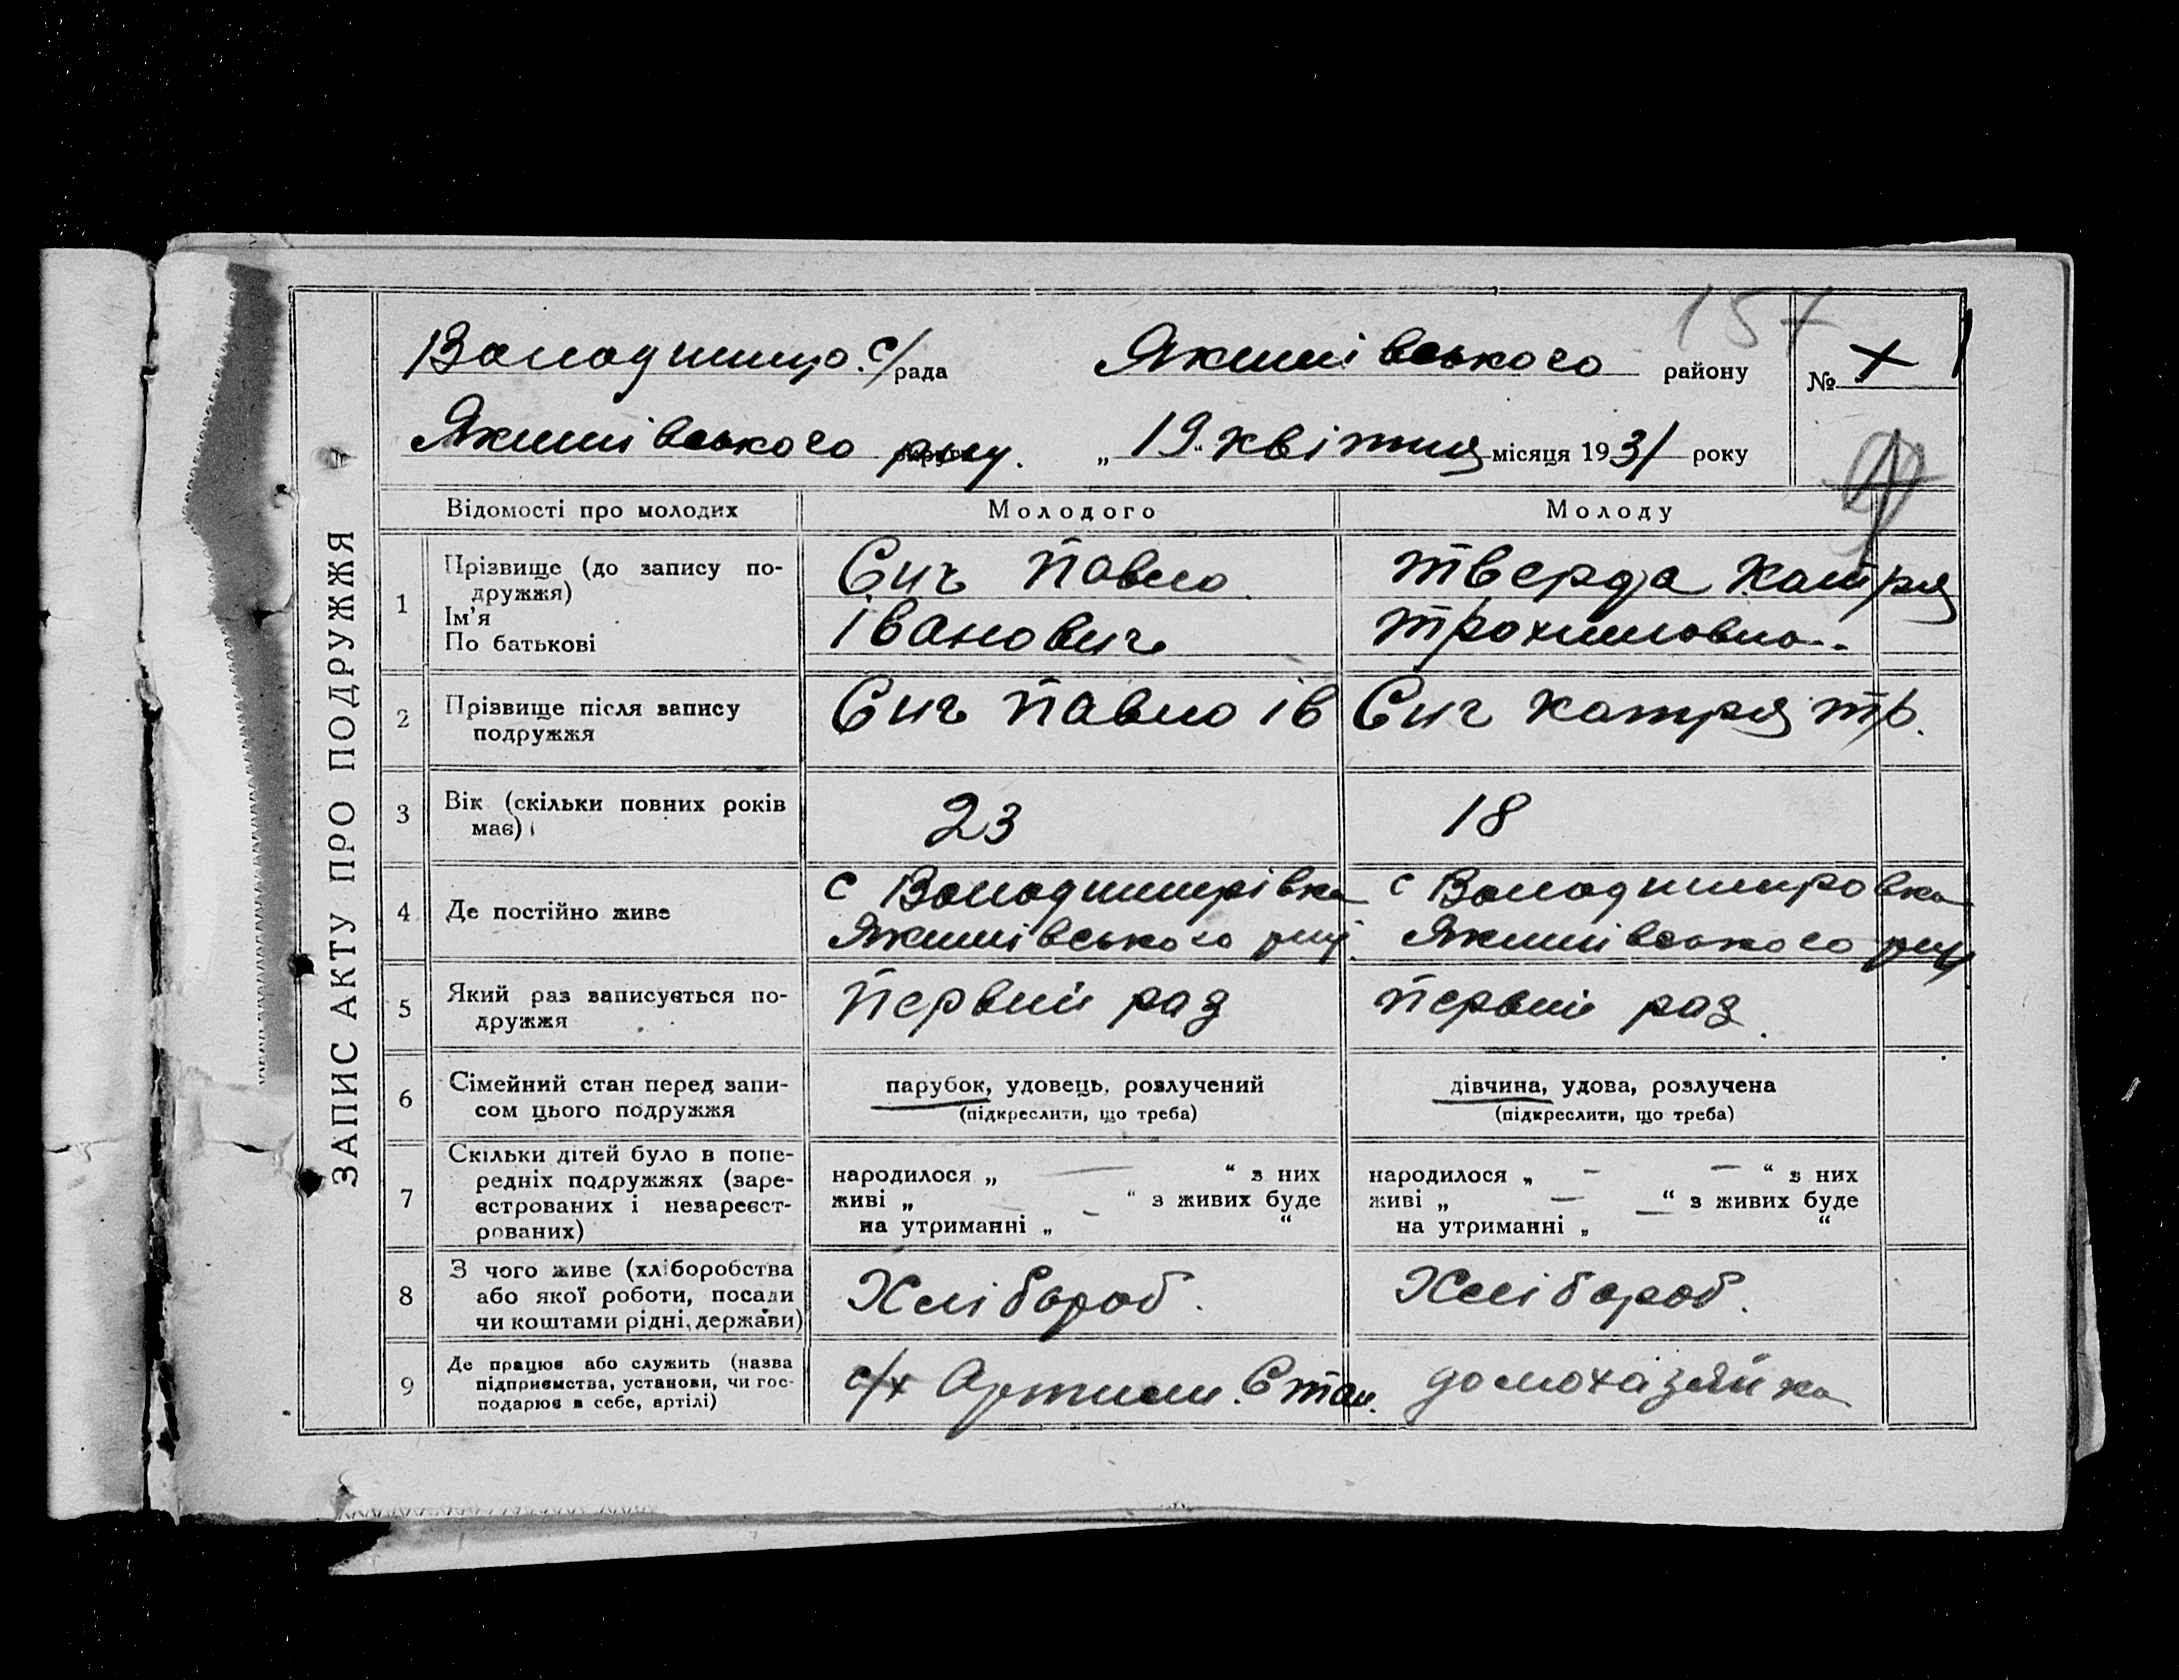 157
Володимир. с/рада Якимівського району №
Якимівського р-ну. „19" квітня місяця 1931 року
ЗАПИС АКТУ ПРО ПОДРУЖЖЯ
Відомості про молодих Молодого Молоду
1 Прізвище (до запису по-
дружжя)
Ім'я
По батькові
Сич Павло
Іванович
Тверда Катря
Трохимовна.
2 Прізвище після запису
подружжя
Сич Павло Ів
Сич Катря Тр.
3 Вік (скільки повних років
має)
23
18
4 Де постійно живе
с Володимирівка
Якимівського р-ну.
с Володимировка
Якимівського р-ну
5 Який раз записується по-
дружжя
Первий раз
Первий раз.
6 Сімейний стан перед запи-
сом цього подружжя
парубок, удовець, розлучений
(підкреслити, що треба)
дівчина, удова, розлучена
(підкреслити, що треба)
7 Скільки дітей було в попе-
редніх подружжях (заре-
єстрованих і незареєст-
рованих)
народилося „ — “ з них
живі „ “ з живих буде
на утриманні „ - “
народилося „ - — “ з них
живі „ — “ з живих буде
на утриманні „ — “
8 З чого живе (хліборобства
або якої роботи, посади
чи коштами рідні, держави)
Хлібороб.
Хлібороб.
9 Де працює або служить (назва
підприємства, установи, чи гос-
подарює в себе, артілі)
с/х Артили. Стал.
домохазяйка